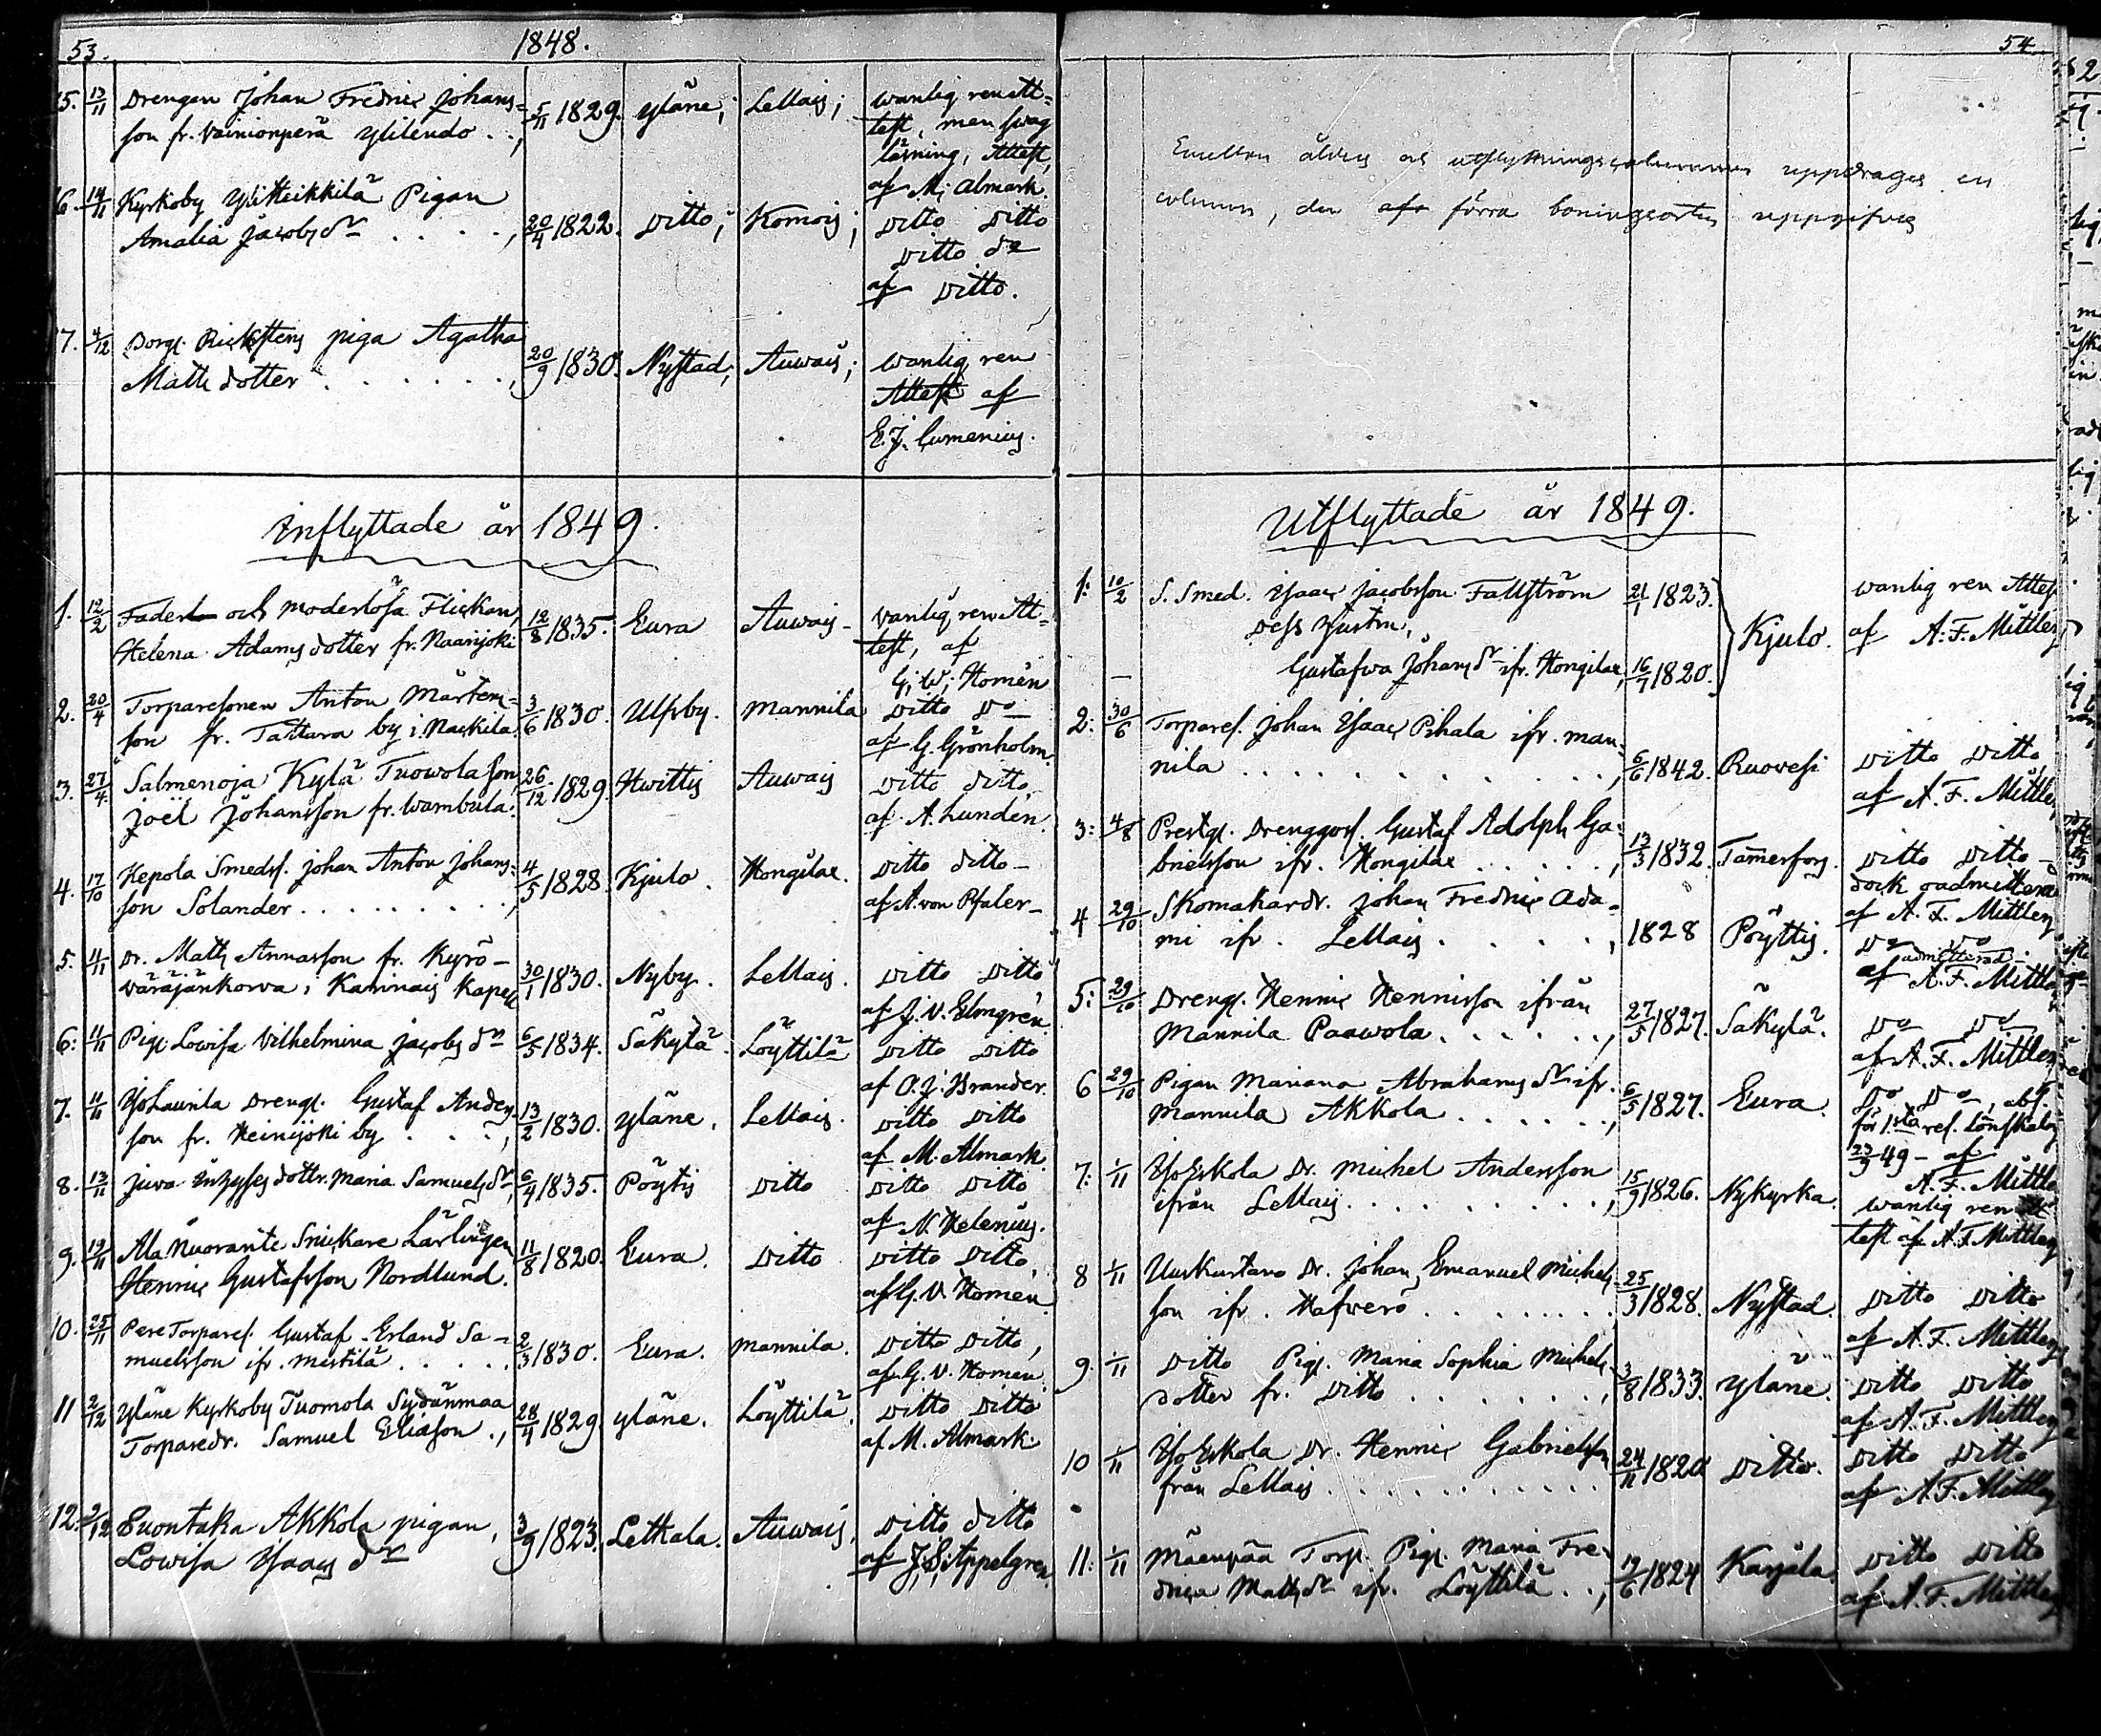 53.
1848.
15. 13/11 Drengen Johan Fredric Johans=
son fr. Vainionperä Ylilendo . . , 5/11 1829. Yläne; Lellais; wanlig ren At=
test, men swag
läsning, Attest,
af M. Almark.
16. 14/11 Kyrkoby Yliheikkilä Pigan
Amalia Jacobsdr . . . . , 20/4 1822. ditto; Komois; ditto ditto
ditto do
af ditto.
17. 4/12 Borg. Pigan Agatha
Matts dotter . . . . . . , 20/9 1830. Nystad; Auwais; wanlig ren
Attest af
E. J. Cumenius.
Inflyttade år 1849.
1. 12/2 Fader och moderlösa Flickan,
Helena Adams dotter fr. Naarijoki 12/8 1835. Eura Auwais - Vanlig ren At=
test, af
G. W. Homén
2. 20/4 Torparesonen Anton Mårtens=
son fr. Tattara by i Nackila. 3/6 1830. Ulfsby. Mannila ditto do
af G. Grönholm
3. 27/4 Salmenoja Kylä Tuowola son
Joël Johansson fr. Wambula. 26/12 1829. Hwittis Auwais ditto ditto,
af A. Lundén.
4. 17/10 Kepola Smeds. Johan Anton Johans=
son Solander . . . . . . . . , 4/5 1828. Kjulo. Hongilax. ditto ditto -
af A. von Pfaler -
5. 4/11 Dr. Matts Annasson fr. Kyrö-
wäräjänkorva i Karinais Kapell 30/1 1830. Nyby. Lellais. ditto ditto
af J. V. Elmgrén.
6: 11/11 Pig. Lowisa Vilhelmina Jacobs dr 6/5 1834. Säkylä. Löyttilä ditto ditto
af O. J. Brander.
7. 11/11 Yso Launla Dreng. Gustaf Anders
son fr. Heinijoki by . . . , 13/2 1830. Yläne. Lellais. ditto ditto
af M. Almark.
8. 13/11 Juva Inhyses dottr. Maria Samuelsdr, 6/4 1835. Pöytis ditto ditto ditto
af N. Helenius.
9. 19/11 Ala Nuorante Snickare Lärlingen
Henric Gustafsson Nordlund. 11/8 1820. Eura. ditto ditto ditto,
af G. V. Homén
10. 25/11 Pere Torpares. Gustaf Erland Sa-
muelsson ifr. Mestilä . . . . . 2/3 1830. Eura. Mannila. ditto ditto,
af G. V. Homén.
11 2/12 Yläne Kyrkoby Tuomola Sydänmaa
Torparedr. Samuel Eliasson . , 28/4 1829 Yläne. Löyttilä. ditto ditto
af M. Almark.
12. 2/12 Suontaka Akkola pigan,
Lowisa Ysaacs dr 3/9 1823. Letkala. Auwais. ditto ditto
af J. S. Appelgren.
54
Emellan ålders och utflyttningscolumnen uppdrages en
column, der förra boningsorten uppgifves
Utflyttade år 1849.
1: 10/2 S. Smed. Ysaac Jacobsson Fallström 21/1 1823.
Dess Hustru,
Gustafwa Johansdr ifr. Hongilax, 16/7 1820. Kjulo. wanlig ren Attest
af A. F. Mittler
2: 30/6 Torpares. Johan Ysaac Pihala ifr. Man-
nila . . . . . . . . . . . , 6/6 1842. Ruovesi ditto ditto,
af A. F. Mittler
3: 4/8 Prestg. Drenggoss. Gustaf Adolph Ga-
brielsson ifr. Hongilax . . . . . , 13/3 1832. Tammerfors. ditto ditto -
dock oadmitterad
af A. F. Mittler
4 29/10 Skomakardr. Johan Fredric Ada-
mi ifr. Lellais . . . . . , 1828 Pöyttis. do do
admitterad
af A. F. Mittler
5: 29/10 Dreng. Hennic Hennisson ifrån
Mannila Paawola . . . . . . , 27/5 1827. Säkylä. do do
af A. F. Mittler
6 29/10 Pigan Mariana Abrahams dr ifr.
Mannila Akkola . . . . . . , 6/5 1827. Eura. do do, abs.
för 1:sta res. lönskaläg
23/9 49 - af
A. F. Mittler
7: 1/11 Yso Eskola Dr. Michel Andersson
ifrån Lellais . . . . . . . . . , 15/9 1826. Nykyrka. wanlig ren At
test af A. F. Mittler
8 1/11 Uuskartano Dr. Johan Emanuel Michels
son ifr. Hafwerö . . . . . . . 25/3 1828. Nystad. ditto ditto
af A. F. Mittler
9. 1/11 ditto Pig. Maria Sophia Michels
dotter fr. ditto . . . . . . , 3/8 1833. Yläne. ditto ditto
af A. F. Mittler
10 1/11 Yso Eskola Dr. Hennic Gabrielsson
från Lellais . . . . . . . . . . 24/11 1820 ditto. ditto ditto
af A. F. Mittler
11: 1/11 Mäenpää Torp. Pig. Maria Fre-
drica Mattsdr ifr. Löyttilä . . , 19/6 1824 Karjala. ditto ditto
af A. F. Mittler